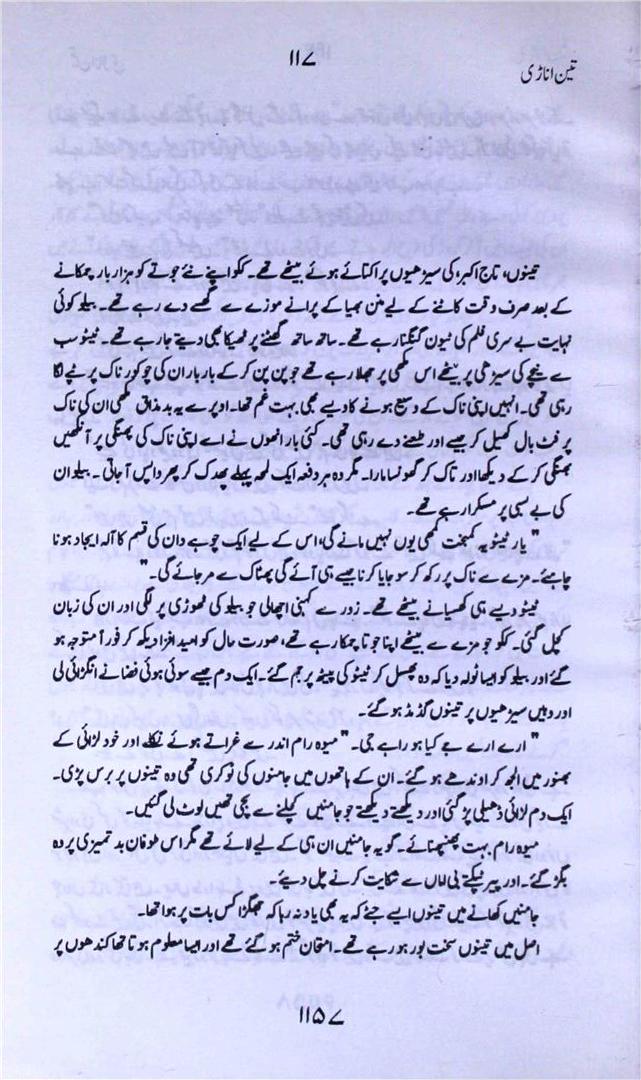 ۱۱۷
تین اناڑی
تینوں، تاج اکبر، کی سیڑھیوں پر اکتائے ہوئے بیٹھے تھے۔ ککو اپنے نئے جوتے کو ہزار بار چمکانے
کے بعد صرف وقت کاٹنے کے لیے منن بھیا کے پرانے موزے سے گھسے دے رہے تھے۔ بیلو کوئی
نہایت بے سری فلم کی ٹیون گنگنا رہے تھے۔ ساتھ ساتھ گھٹنے پر ٹھیکا بھی دیتے جا رہے تھے۔ ٹیٹو سب
سے نیچے کی سیڑھی پر بیٹھے اس مکھی پر جھلا رہے تھے جو پن پن کر کے بار بار ان کی چوکور ناک پر نپے لگا
رہی تھی۔ انہیں اپنی ناک کے وسیع ہونے کا ویسے بھی بہت غم تھا۔ اوپر سے یہ بدمذاق مکھی ان کی ناک
پر فٹ بال کھیل کر جیسے اور طعنے دے رہی تھی۔ کئی بار انھوں نے اسے اپنی ناک کی پھنگی پر آنکھیں
بھینگی کر کے دیکھا اور تاک کر گھونسا مارا۔ مگر وہ ہر دفعہ ایک لمحہ پہلے پھدک کر پھر واپس آ جاتی۔ بیلو ان
کی بے بسی پر مسکرا رہے تھے۔
"یار ٹیٹو یہ کمبخت مکھی یوں نہیں مانے گی، اس کے لیے ایک چوہے دان کی قسم کا آلہ ایجاد ہونا
چاہئے۔ مزے سے ناک پر رکھ کر سو جایا کرنا جیسے ہی آئے گی پھٹاک سے مر جائے گی۔"
ٹیٹو ویسے ہی کھسیانے بیٹھے تھے۔ زور سے کہنی اچھالی جو بیلو کی ٹھوڑی پر لگی اور ان کی زبان
کچل گئی۔ ککو جو مزے سے بیٹھے اپنا جوتا چمکا رہے تھے، صورت حال کو امید افزا دیکھ کر فوراً متوجہ ہو
گئے اور بیلو کو ایسا ٹولہ دیا کہ وہ پھسل کر ٹیٹو کی پیٹھ پر جم گئے۔ ایک دم جیسے سوئی ہوئی فضا نے انگڑائی لی
اور وہیں سیڑھیوں پر تینوں گڈمڈ ہو گئے۔
"ارے ارے جے کیا ہو راہے جی۔" میوہ رام اندر سے غراتے ہوئے نکلے اور خود لڑائی کے
بھنور میں الجھ کر اوندھے ہو گئے۔ ان کے ہاتھوں میں جامنوں کی ٹوکری تھی وہ تینوں پر برس پڑی۔
ایک دم لڑائی ڈھیلی پڑ گئی اور دیکھتے دیکھتے جو جامنیں کچلنے سے بچی تھیں لوٹ لی گئیں۔
میوہ رام بہت بھنبھنائے۔ گو یہ جامنیں ان ہی کے لیے لائے تھے مگر اس طوفان بدتمیزی پر وہ
بگڑ گئے۔ اور پیر پٹکتے بی اماں سے شکایت کرنے چل دیئے۔
جامنیں کھانے میں تینوں ایسے جٹے کہ یہ بھی یاد نہ رہا کہ جھگڑا کس بات پر ہوا تھا۔
اصل میں تینوں سخت بور ہو رہے تھے۔ امتحان ختم ہو گئے تھے اور ایسا معلوم ہوتا تھا کندھوں پر
۱۱۵۷